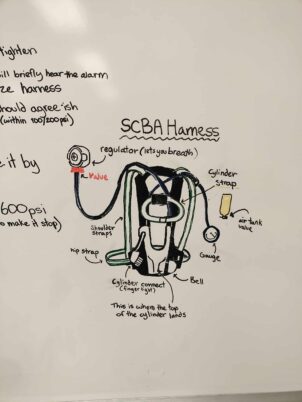 tighten
ill briefly hear the alarm
ze harness
hould agree ish
(within 100/200psi)
e it by
600psi
o make it stop)
SCBA Harness
regulator (lets you breath)
Valve
Cylinder
strap
air tank
valve
Shoulder
straps
Gauge
hip strap
Cylinder connect
(finger tight)
Bell
This is where the top
of the cylinder lands